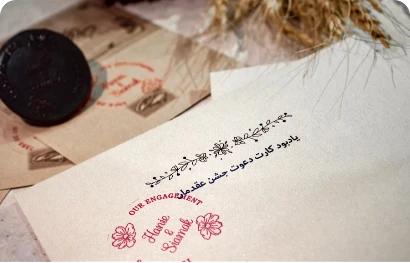 یادبود کارت دعوت جشن عقدمان
OUR ENGAGEMENT
Hanie
&
Siamak